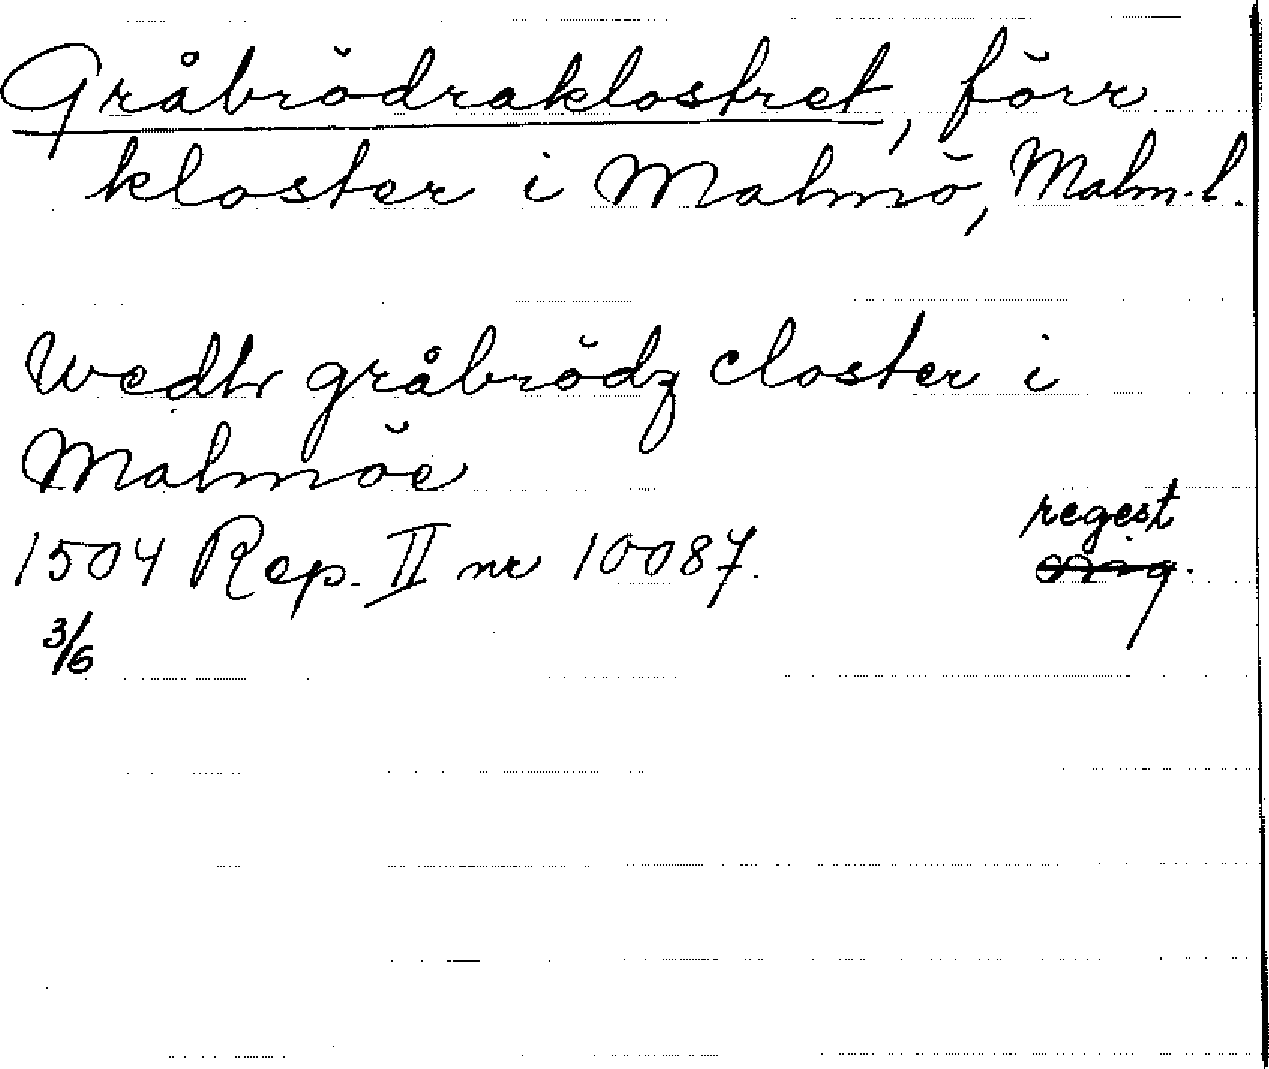 Gråbrödraklostret, förr
kloster i Malmö, Malm. l.
Wedh gråbrödz closter i
Malmöe
regest
1504 Rep. II nr 10087. orig.
3/6